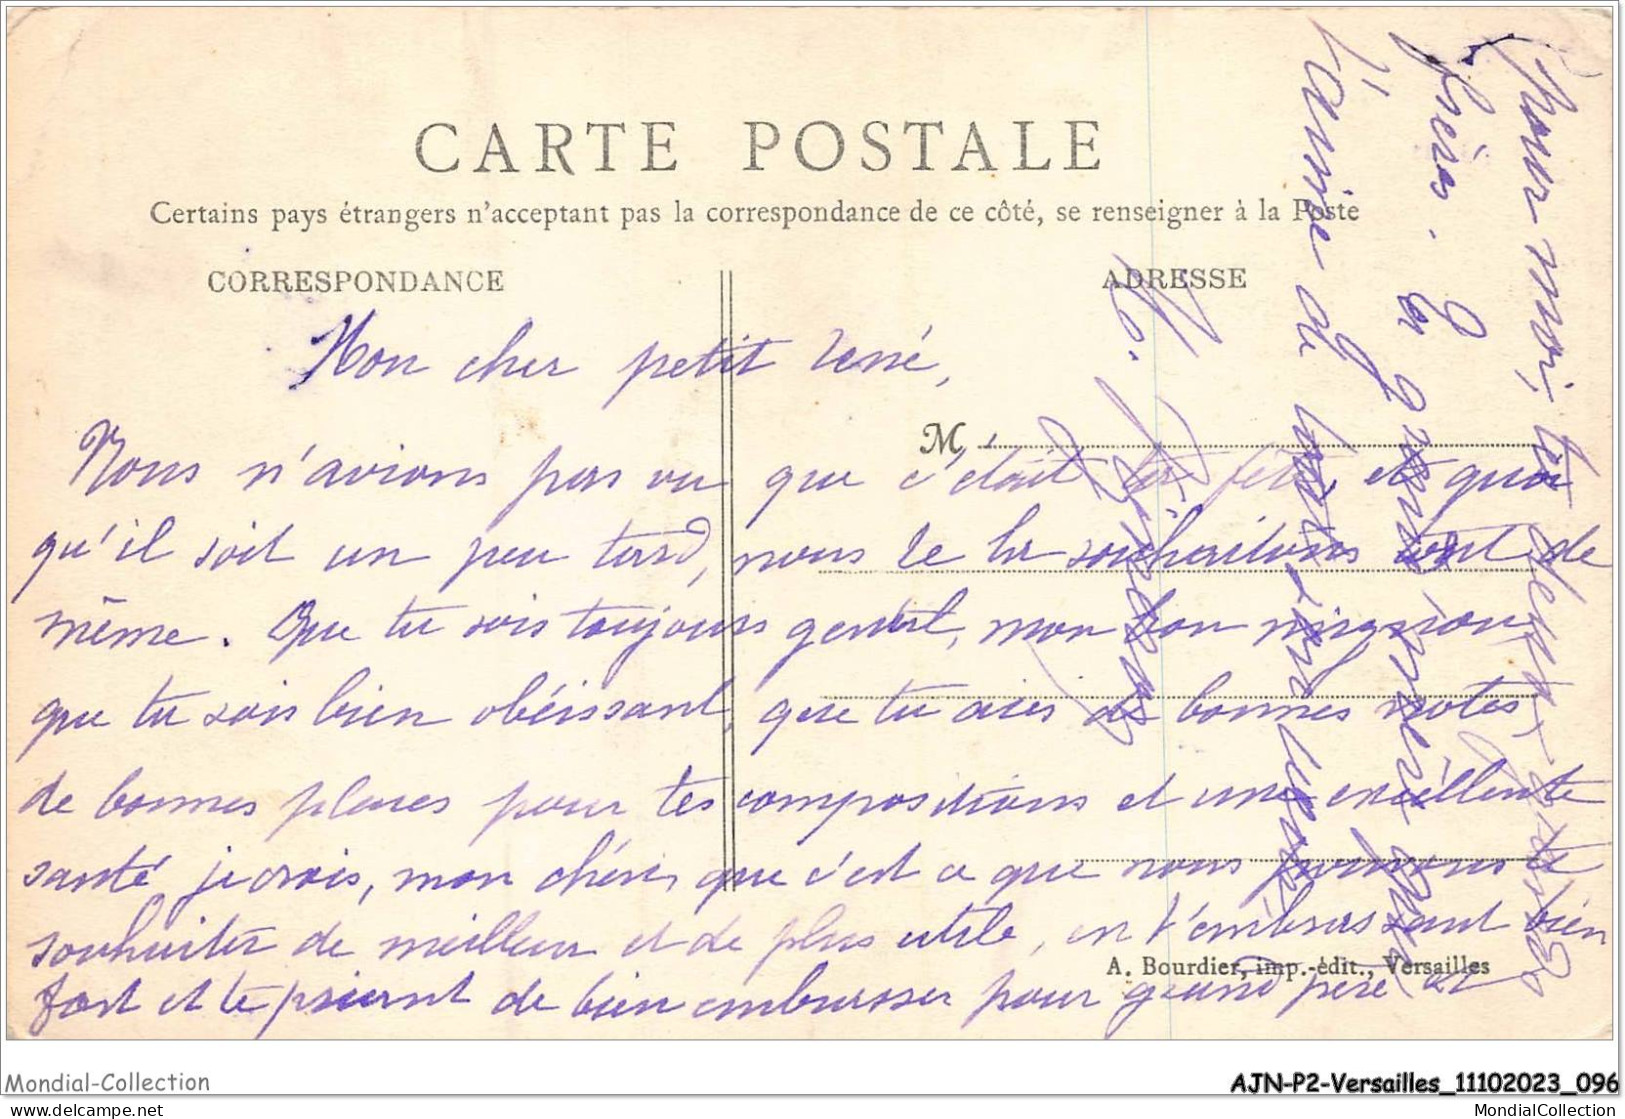 CARTE POSTALE
Certains pays étrangers n'acceptant pas la correspondance de ce côté, se renseigner à la Poste
CORRESPONDANCE
ADRESSE
M
Mon cher petit René,
Nous n'avions pas vu que c'était ta fête et quoi
qu'il soit un peu tard, nous te la souhaitons tout de
même. Que tu sois toujours gentil, mon bon mignon
que tu sois bien obéissant, que tu aies de bonnes notes
de bonnes places pour tes compositions et une excellente
santé, je crois, mon chéri, que c'est ce que nous pouvons te
souhaiter de meilleur et de plus utile, en t'embrassant bien
fort et te priant de bien embrasser pour grand père et
pour moi, tes deux
frères. Ta grand' mère qui
t'aime de tout son cœur
A. Bourdier, imp.-édit., Versailles
Mondial-Collection
AJN-P2-Versailles_11102023_096
www.delcampe.net
MondialCollection